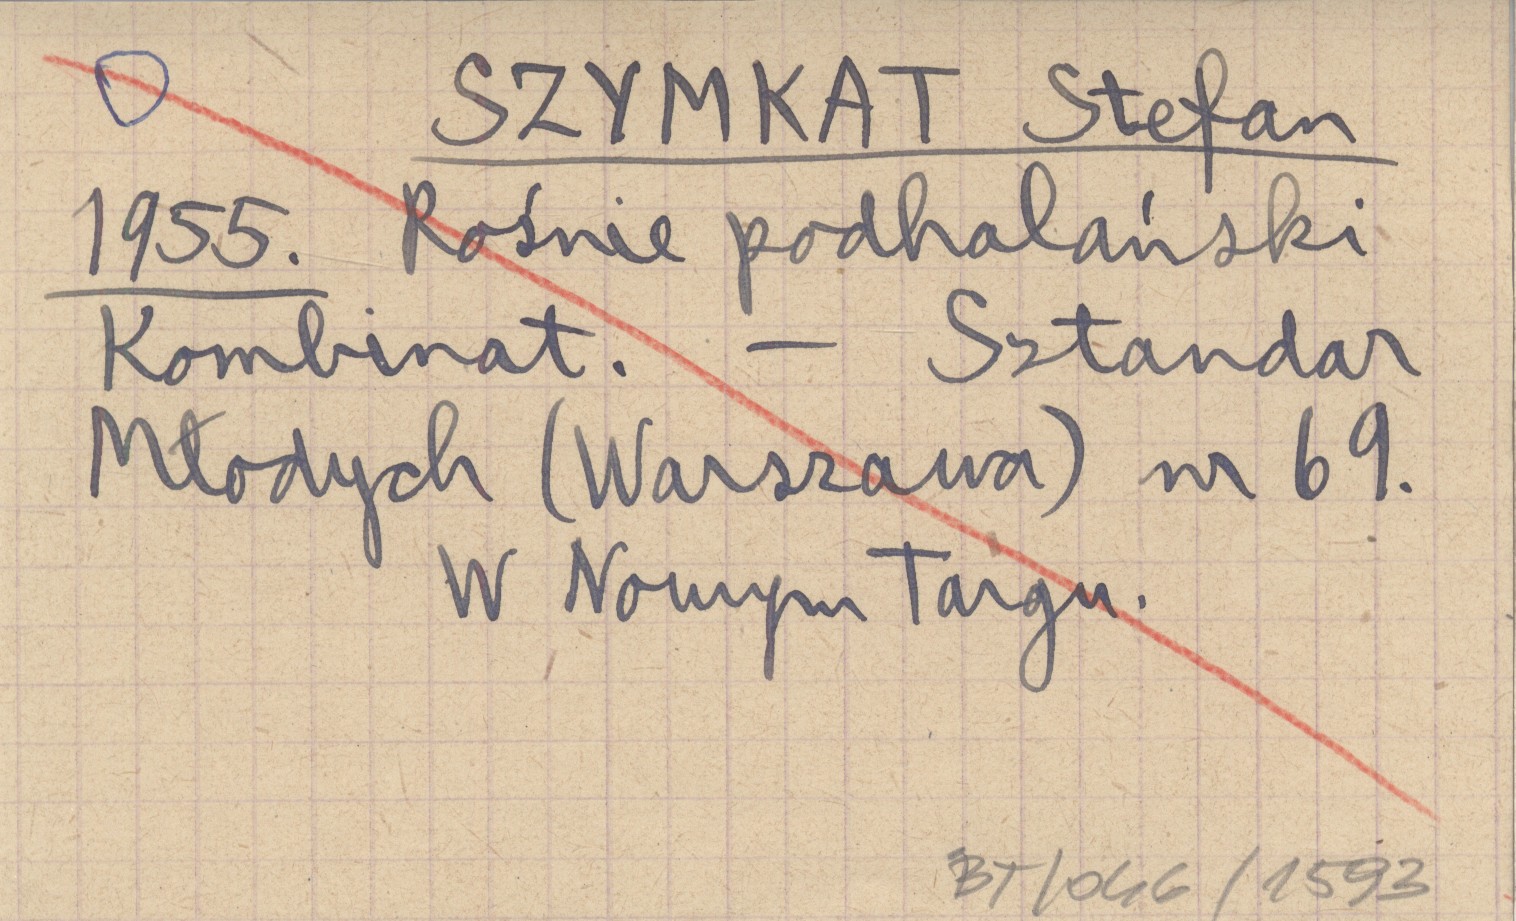 SZYMKAT Stefan
1955. Rośnie podhalański
Kombinat. — Sztandar
Młodych (Warszawa) nr 69.
W Nowym Targu.
BT/046/1593